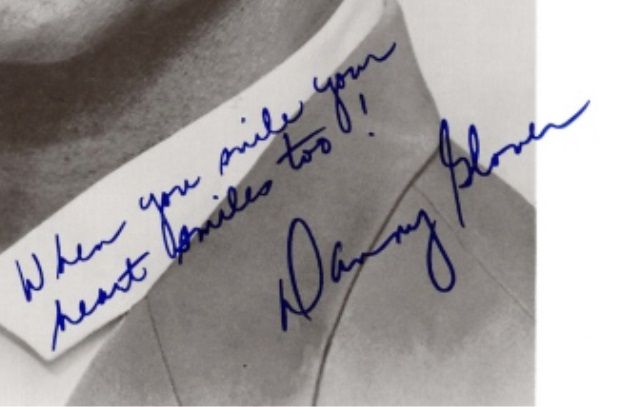 When you smile your
heart smiles too!
Danny Glover